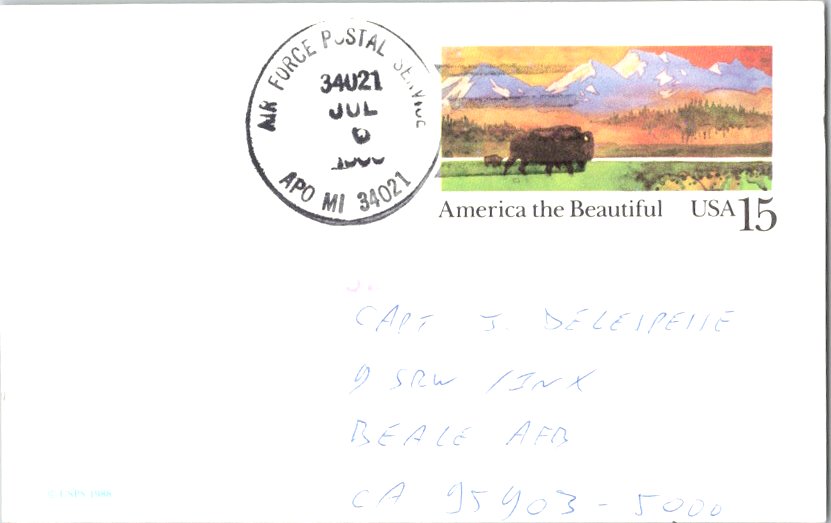 AIR FORCE POSTAL SERVICE
34021
JUL
APO MI 34021
America the Beautiful USA 15
CAPT J. DELESPESSE
9 SRW / INX
BEALE AFB
CA 95903-5000
© USPS 1988